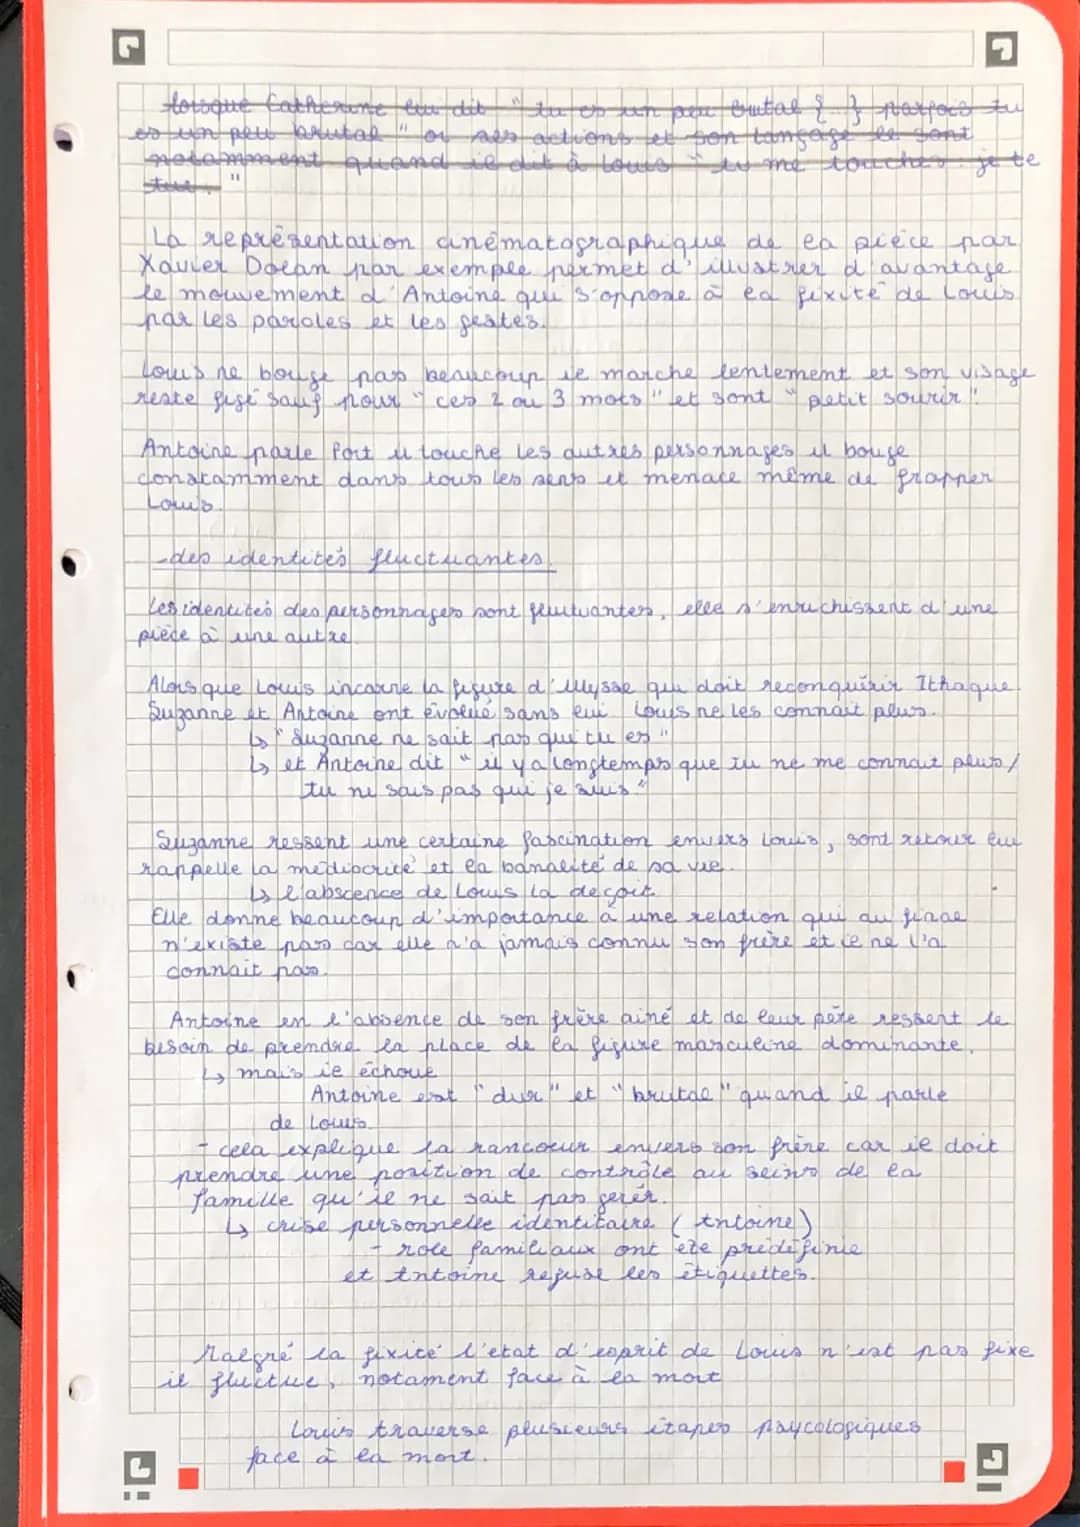 lorsque Catherine lui dit " tu es un peu brutal {...} parfois tu
es un peu brutal " or ses actions et son langage le sont
notamment quand il dit à Louis " tu me touches : je te
tue. "
La représentation cinématographique de la pièce par
Xavier Dolan par exemple permet d'illustrer d'avantage
le mouvement d'Antoine qui s'oppose à la fixité de Louis
par les paroles et les gestes.
Louis ne bouge pas beaucoup il marche lentement et son visage
reste figé sauf pour " ces 2 ou 3 mots " et sont " petit sourir ".
Antoine parle fort il touche les autres personnages il bouge
constamment dans tous les sens et menace même de frapper
Louis.
- des identités fluctuantes.
Les identités des personnages sont fluctuantes, elles s'enrichissent d'une
pièce à une autre.
Alors que Louis incarne la figure d'Ulysse qui doit reconquirir Ithaque
Suzanne et Antoine ont évolué sans lui Louis ne les connait plus.
↳ " Suzanne ne sait pas qui tu es "
↳ et Antoine dit " il y a longtemps que tu ne me connait plus /
tu ne sais pas qui je suis "
Suzanne ressent une certaine fascination envers Louis, sont retour lui
rappelle la médiocrité et la banalité de sa vie.
↳ l'abscence de Louis la deçoit.
Elle donne beaucoup d'importance à une relation qui au final
n'existe pas car elle n'a jamais connu son frère et il ne l'a
connait pas.
Antoine en l'absence de son frère ainé et de leur père ressent le
besoin de prendre la place de la figure masculine dominante.
↳ mais il échoue
Antoine est " dur " et " brutal " quand il parle
de Louis.
- cela explique la rancoeur envers son frère car il doit
prendre une position de contrôle au seins de la
famille qu'il ne sait pas gerér.
↳ crise personnelle identitaire (Antoine)
- role familiaux ont été prédéfinie
et Antoine refuse les étiquettes.
Malgré la fixité l'etat d'esprit de Louis n'est pas fixe
il fluctue, notament face à la mort
Louis traverse plusieurs étapes psycologiques
face à la mort.